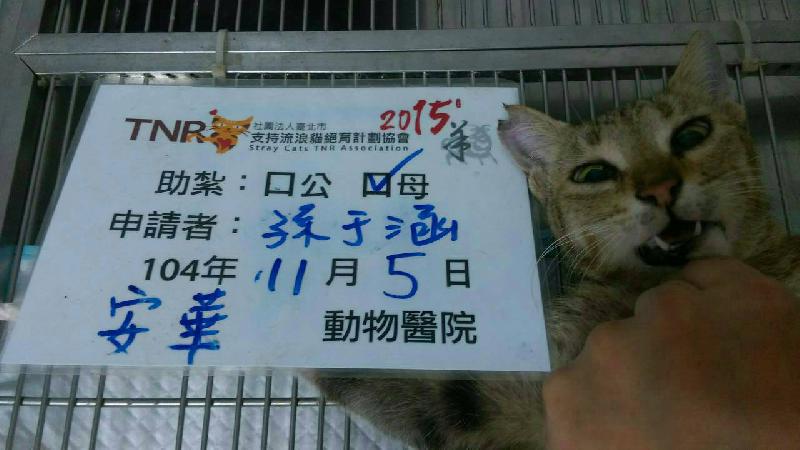 TNR 社團法人臺北市
支持流浪貓絕育計劃協會
Stray Cats TNR Association
2015
助紮：口公 口母
申請者：孫于涵
104年 11月5日
安華 動物醫院